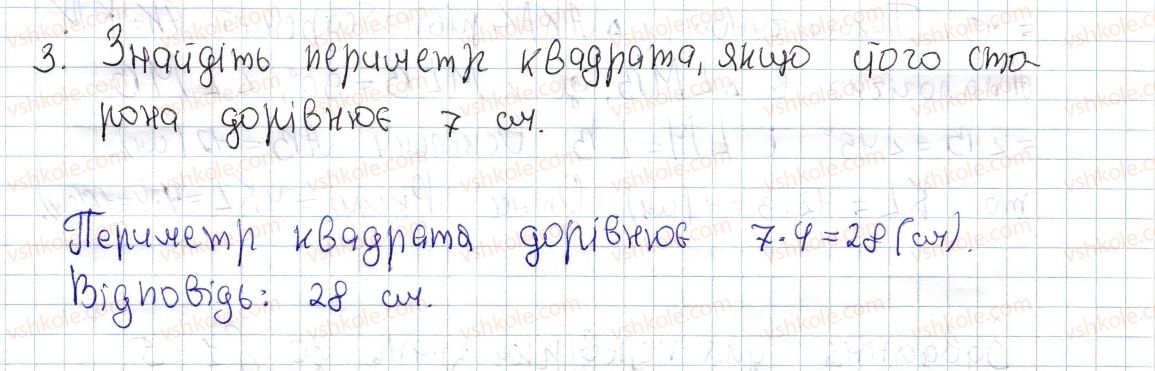 3. Знайдіть периметр квадрата, якщо його сто
рона дорівнює 7 см.
Периметр квадрата дорівнює 7·4=28 (см).
Відповідь: 28 см.